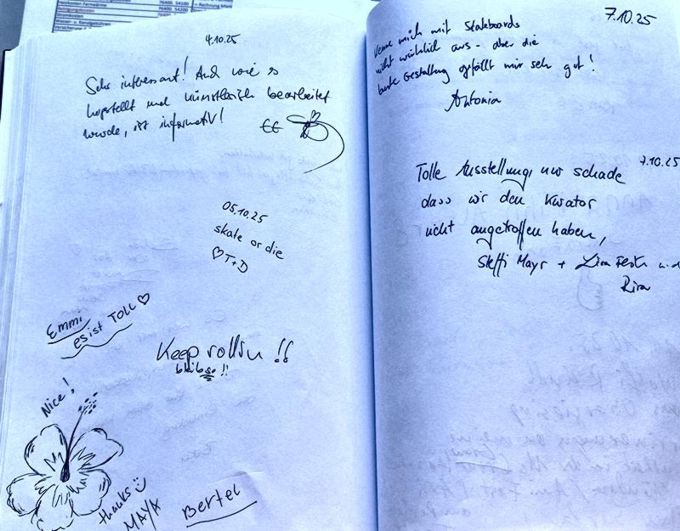 4.10.25
Sehr interessant! Auch wie es
hergestellt und künstlerisch bearbeitet
wurde, ist informativ!
05.10.25
skate or die
♡T+D
Emmi
es ist TOLL ♡
Keep rollin !!
bleib so !!
Nice!
thanks
MAYA
Bertel
7.10.25
Kenne mich mit Skateboards
nicht wirklich aus - aber die
bunte Gestaltung gefällt mir sehr gut!
Antonia
7.10.25
Tolle Ausstellung nur schade
dass wir den Kurator
nicht angetroffen haben,
Steffi Mayr +